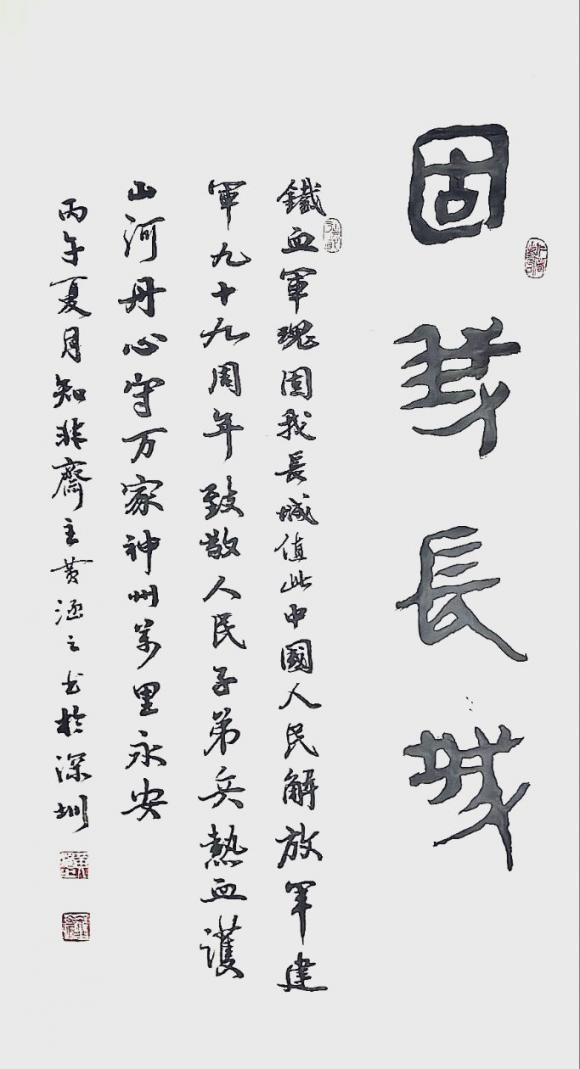 固我長城
鐵血軍魂固我長城值此中國人民解放軍建
軍九十九周年致敬人民子弟兵熱血護
山河丹心守万家神州万里永安
丙午夏月知非齋主黄涵之书於深圳